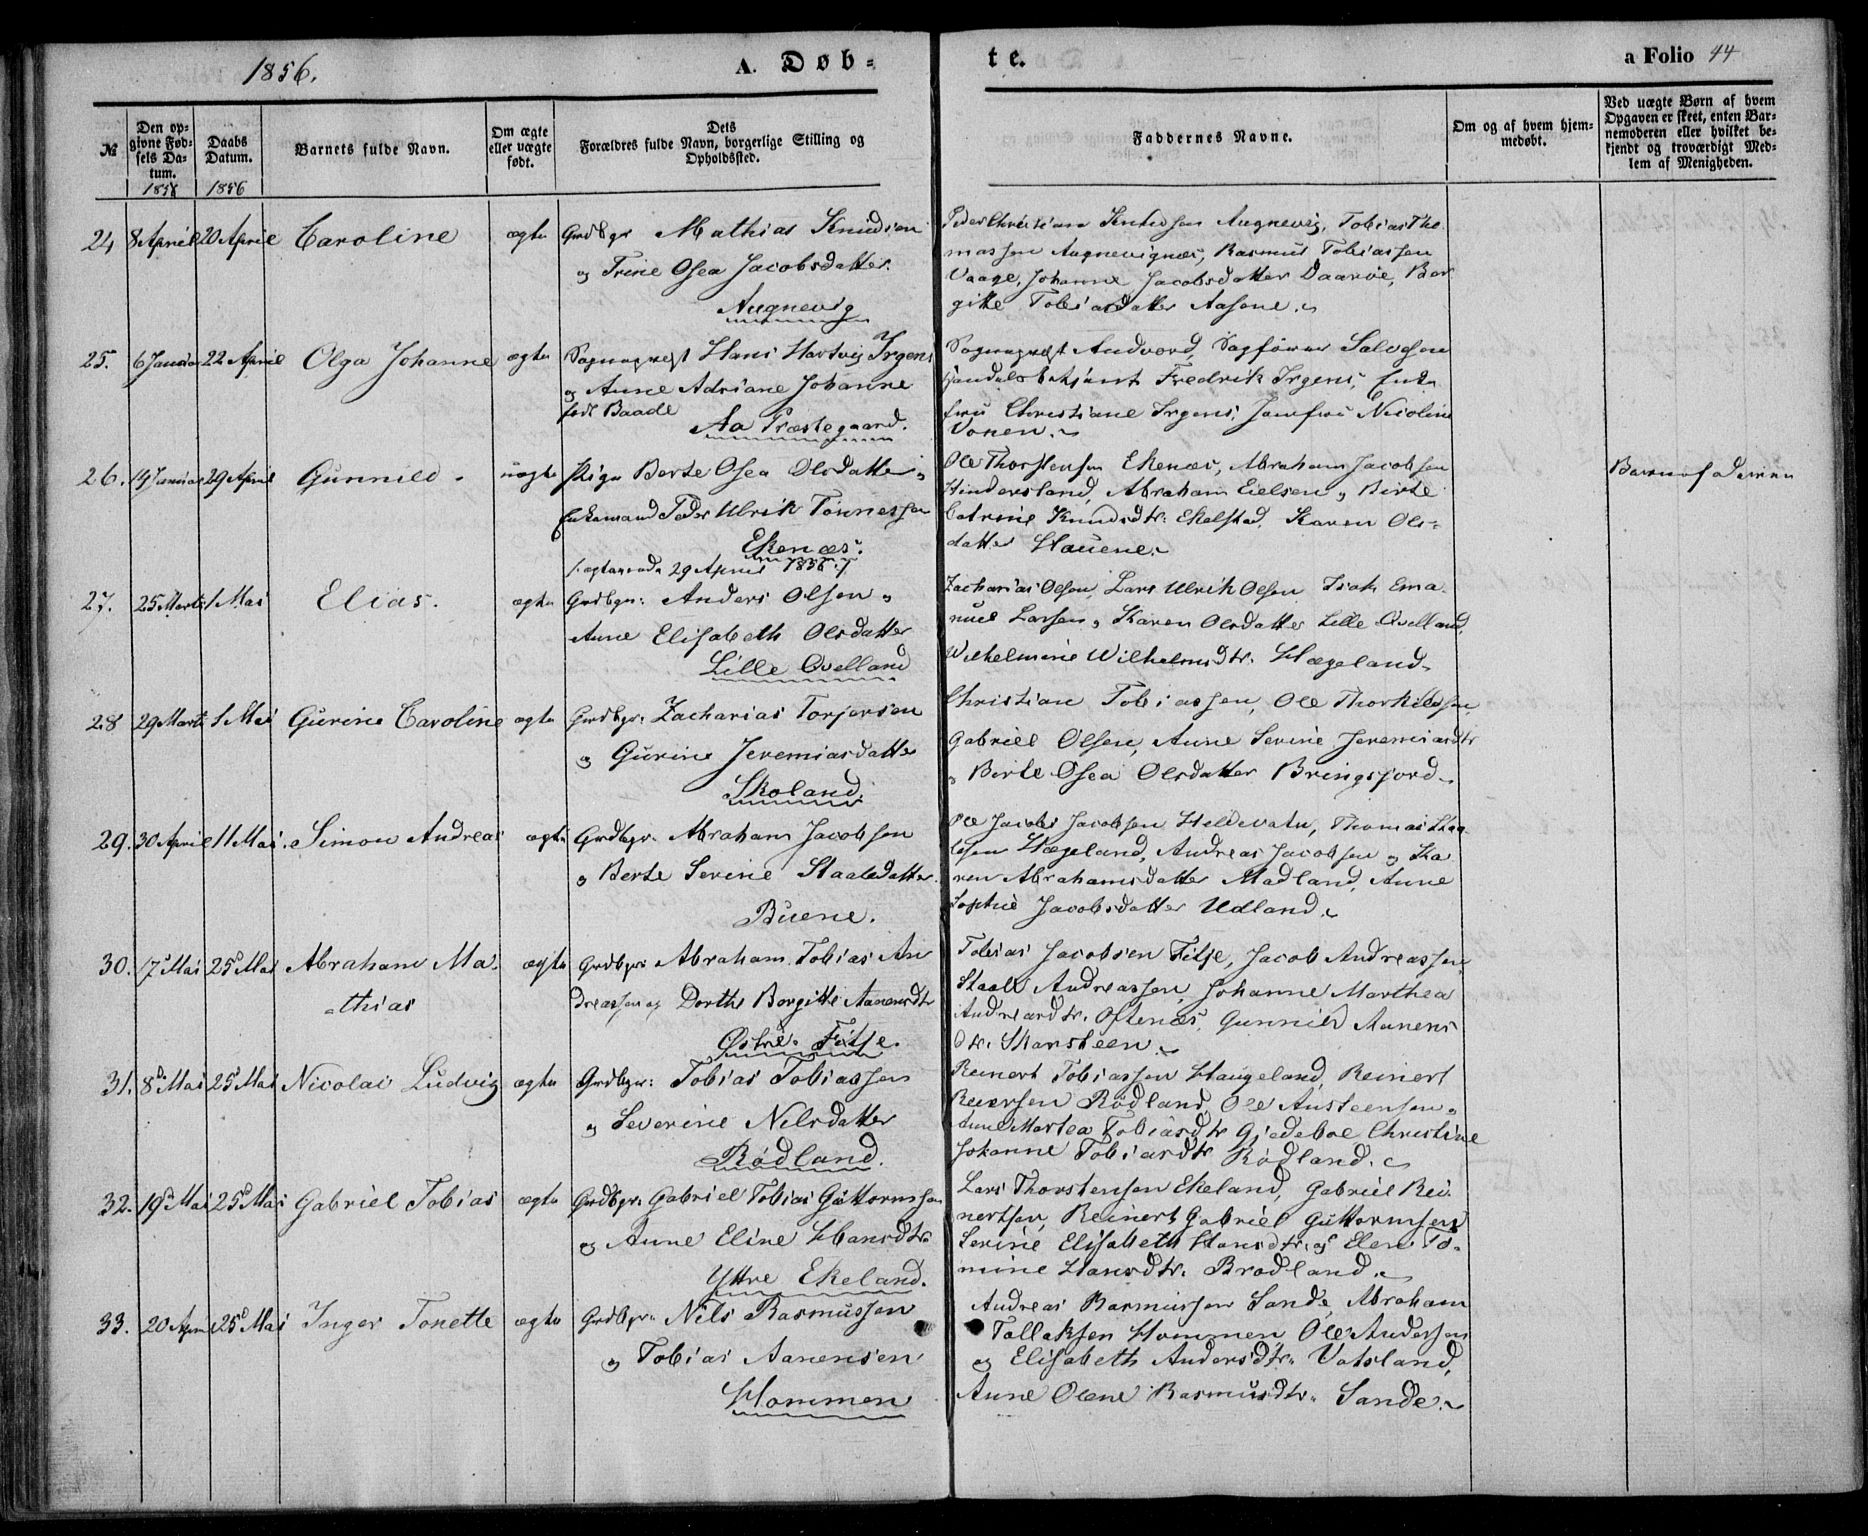 1856.
A. Døb-
te.
a Folio 44
№
Den op-
givne Fød-
sels Da-
tum.
1856
Daabs
Datum.
1856
Barnets fulde Navn.
Om ægte
eller uægte
født.
Dets
Forældres fulde Navn, borgerlige Stilling og
Opholdssted.
Faddernes Navne.
Om og af hvem hjem-
medøbt.
Ved uægte Børn af hvem
Opgaven er skeet, enten Bar-
nemoderen eller hvilket be-
kjendt og troværdigt Med-
lem af Menigheden.
24 8 April 20 April Caroline ægte Grdbgr Mathias Knudsen
og Trine Osea Jacobsdatter.
Augnevig
Peder Christian Knudsen Augnevig, Tobias Tho-
massen Augnevignæs, Rasmus Tobiassen
Vaage, Johanne Jacobsdatter Daarøe, Bor
gitte Tobiasdatter Aasene.
25. 6 Januar 22 April Olga Johanne ægte Sognepræst Hans Hartvig Irgens
og Anne Adriane Johanne
født Baade
Aa Præstegaard.
Sognepræst Andvord, Sagfører Salvesen
Handelsbetjent Fredrik Irgens, Enke
fru Christiane Irgens, Jomfru Nicoline
Vonen.
26. 19 Januar 29 April Gunnild uægte Pige Berte Osea Olsdatter og
Enkemand Peder Ulrik Tønnessen
Ekenæs.
/: ægteviede 29 April 1856 :/
Ole Thorstensen Ekenæs, Abraham Jacobsen
Hindersland, Abraham Eielsen og Birte
Catrine Knudsdtr: Ekelstad, Karen Ols-
datter Hauene.
Barnefaderen
27. 25 Marts 1 Mai Elias. ægte Grdbgr: Anders Olsen og
Anne Elisabeth Olsdatter
Lille Qvelland
Zacharias Olsen, Lars Ulrik Olsen Isak Ema-
nuel Larsen og Karen Olsdatter Lille Qvelland,
Wilhelmine Wilhelmsdtr. Hægeland
28 29 Marts 1 Mai Gurine Caroline ægte Grdbgr: Zacharias Torjersen
og Gurine Jeremiasdatter
Skoland.
Christian Tobiassen, Ole Thorkildsen,
Gabriel Olsen, Anne Serine Jeremiasdtr
og Berte Osea Olsdatter Bringsjord
29. 30 April 11 Mai. Simon Andreas ægte Grdbgr. Abraham Jacobsen
og Berte Serine Staalesdatter
Buene.
Ole Jacob Jacobsen Heldevatn, Thomas Staa-
lesen Hægeland, Andreas Jacobsen og Ka
ren Abrahamsdatter Madland, Anne
Sophie Jacobsdatter Udland
30. 17 Mai 25 Mai Abraham Ma- ægte Grdbgr: Abraham Tobias An
thias
dreassen og Dorthe Borgitte Aanensdtr
Østre Fitje.
Tobias Jacobsen Fitje, Jacob Andreassen,
Staale Andreassen, Johanne Marthea
Andreasdtr. Oftenæs, Gunnild Aanens
dtr. Skarsteen
31. 8 Mai 25 Mai Nicolai Ludvig ægte Grdbgr: Tobias Tobiassen
og Severine Nilsdatter
Rødland.
Reinert Tobiassen Haugeland, Reinert
Reiersen Rødland, Ole Austeensen og
Anne Martea Tobiasdtr Gjedeboe Christine
Johanne Tobiasdtr Rødland.
32. 19 Mai 25 Mai Gabriel Tobias ægte Grdbgr: Gabriel Tobias Guttormsen
og Anne Eline Hansdtr
Yttre Ekeland.
Lars Thorstensen Ekeland, Gabriel Rei-
nertsen, Reinert Gabriel Guttormsen
Serine Elisabeth Hansdtr. og Elen To-
mine Hansdtr. Brødland.
33. 20 April 25 Mai Inger Tonette ægte Grdbgr: Nils Rasmussen
og Tobias Aanensen
Hommen
Andreas Rasmussen Sande, Abraham
Tallaksen Hommen Ole Andersen
og Elisabeth Andersdtr. Vatsland,
Anne Olene Rasmusdtr. Sande.